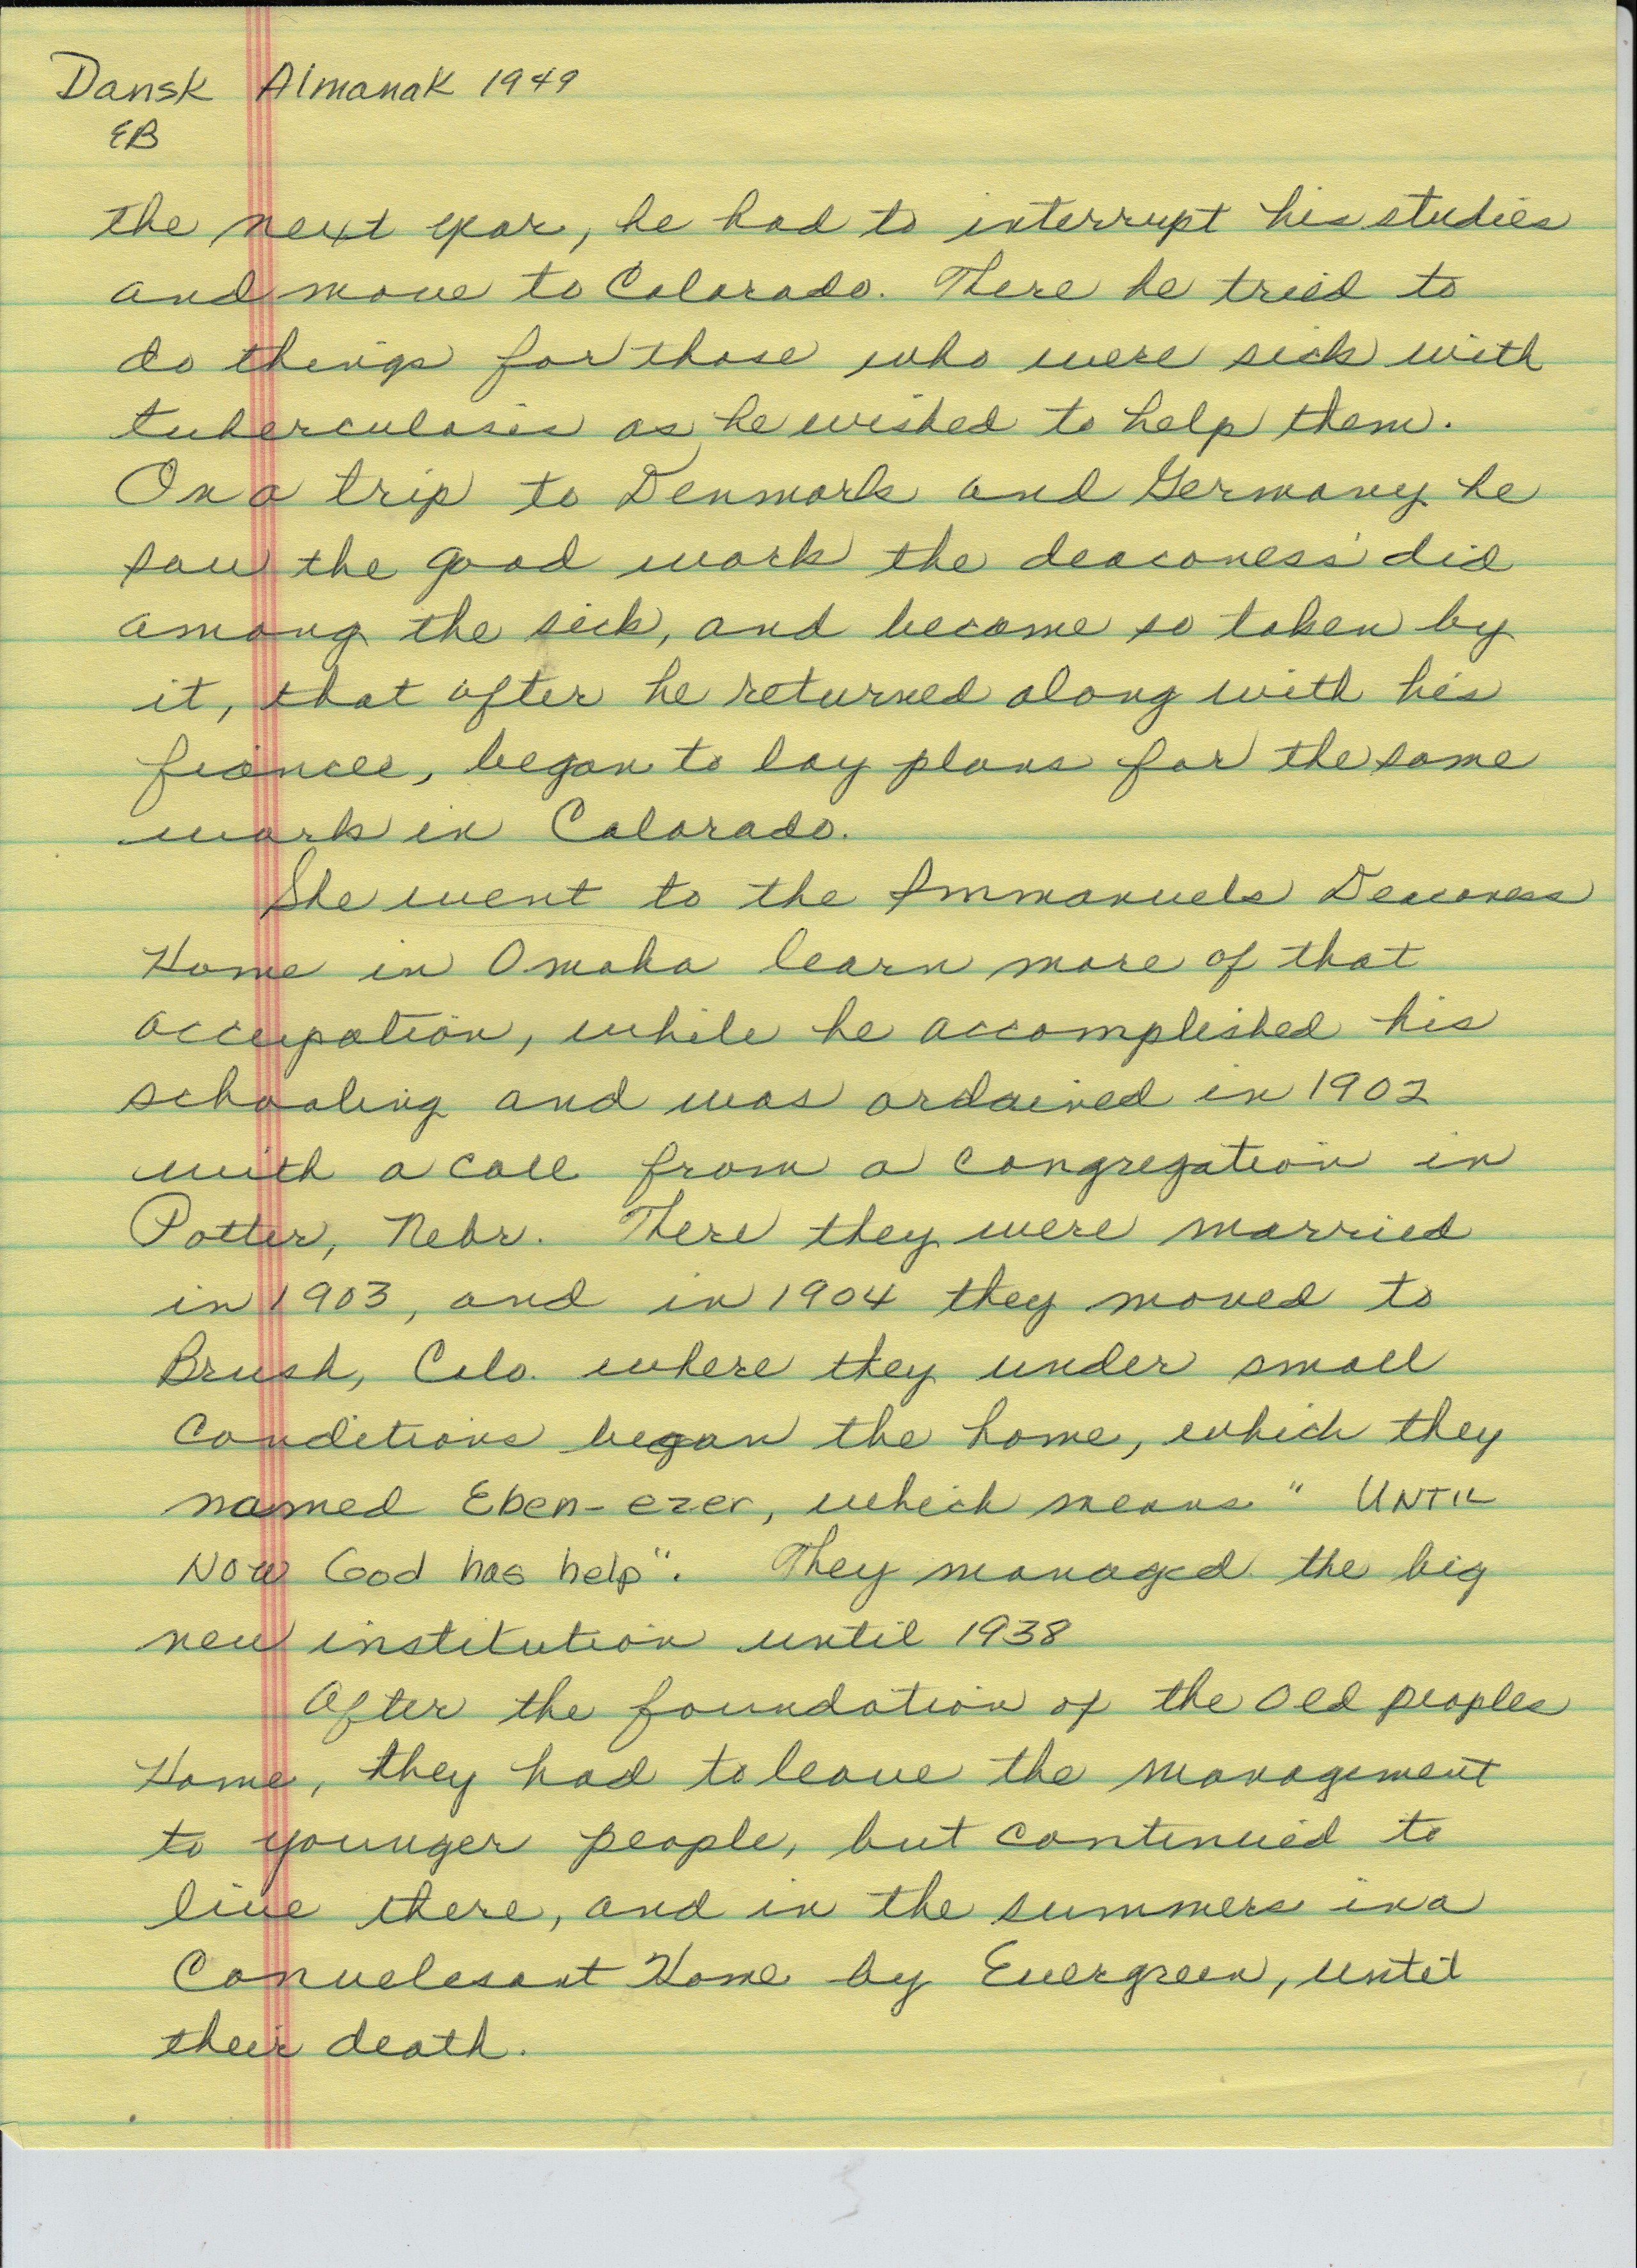 Dansk Almanak 1949
EB
the next year, he had to interrupt his studies
and move to Colorado. There he tried to
do things for those who were sick with
tuberculosis as he wished to help them.
On a trip to Denmark and Germany he
saw the good work the deaconess' did
among the sick, and became so taken by
it, that after he returned along with his
fiancee, began to lay plans for the same
work in Colorado.
She went to the Immanuels Deaconess
Home in Omaha learn more of that
occupation, while he accomplished his
schooling and was ordained in 1902
with a call from a congregation in
Potter, Nebr. There they were married
in 1903, and in 1904 they moved to
Brush, Colo. where they under small
conditions began the home, which they
named Eben-ezer, which means " UNTIL
NOW God has help". They managed the big
new institution until 1938
After the foundation of the Old peoples
Home, they had to leave the management
to younger people, but continued to
live there, and in the summers in a
Convelesant Home by Evergreen, until
their death.